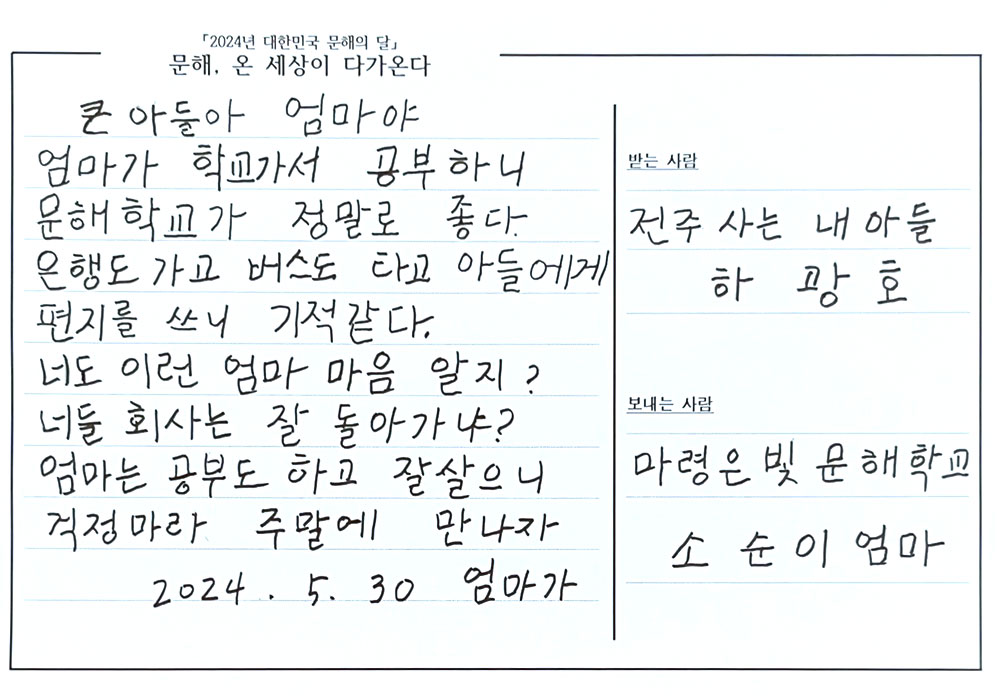 「2024년 대한민국 문해의 달」
문해, 온 세상이 다가온다
큰 아들아 엄마야
엄마가 학교가서 공부하니
문해학교가 정말로 좋다.
은행도 가고 버스도 타고 아들에게
편지를 쓰니 기적같다.
너도 이런 엄마 마음 알지?
너들 회사는 잘 돌아가냐?
엄마는 공부도 하고 잘살으니
걱정마라 주말에 만나자
2024. 5. 30 엄마가
받는 사람
전주 사는 내 아들
하 광 호
보내는 사람
마령은빛 문해학교
소 순 이 엄마